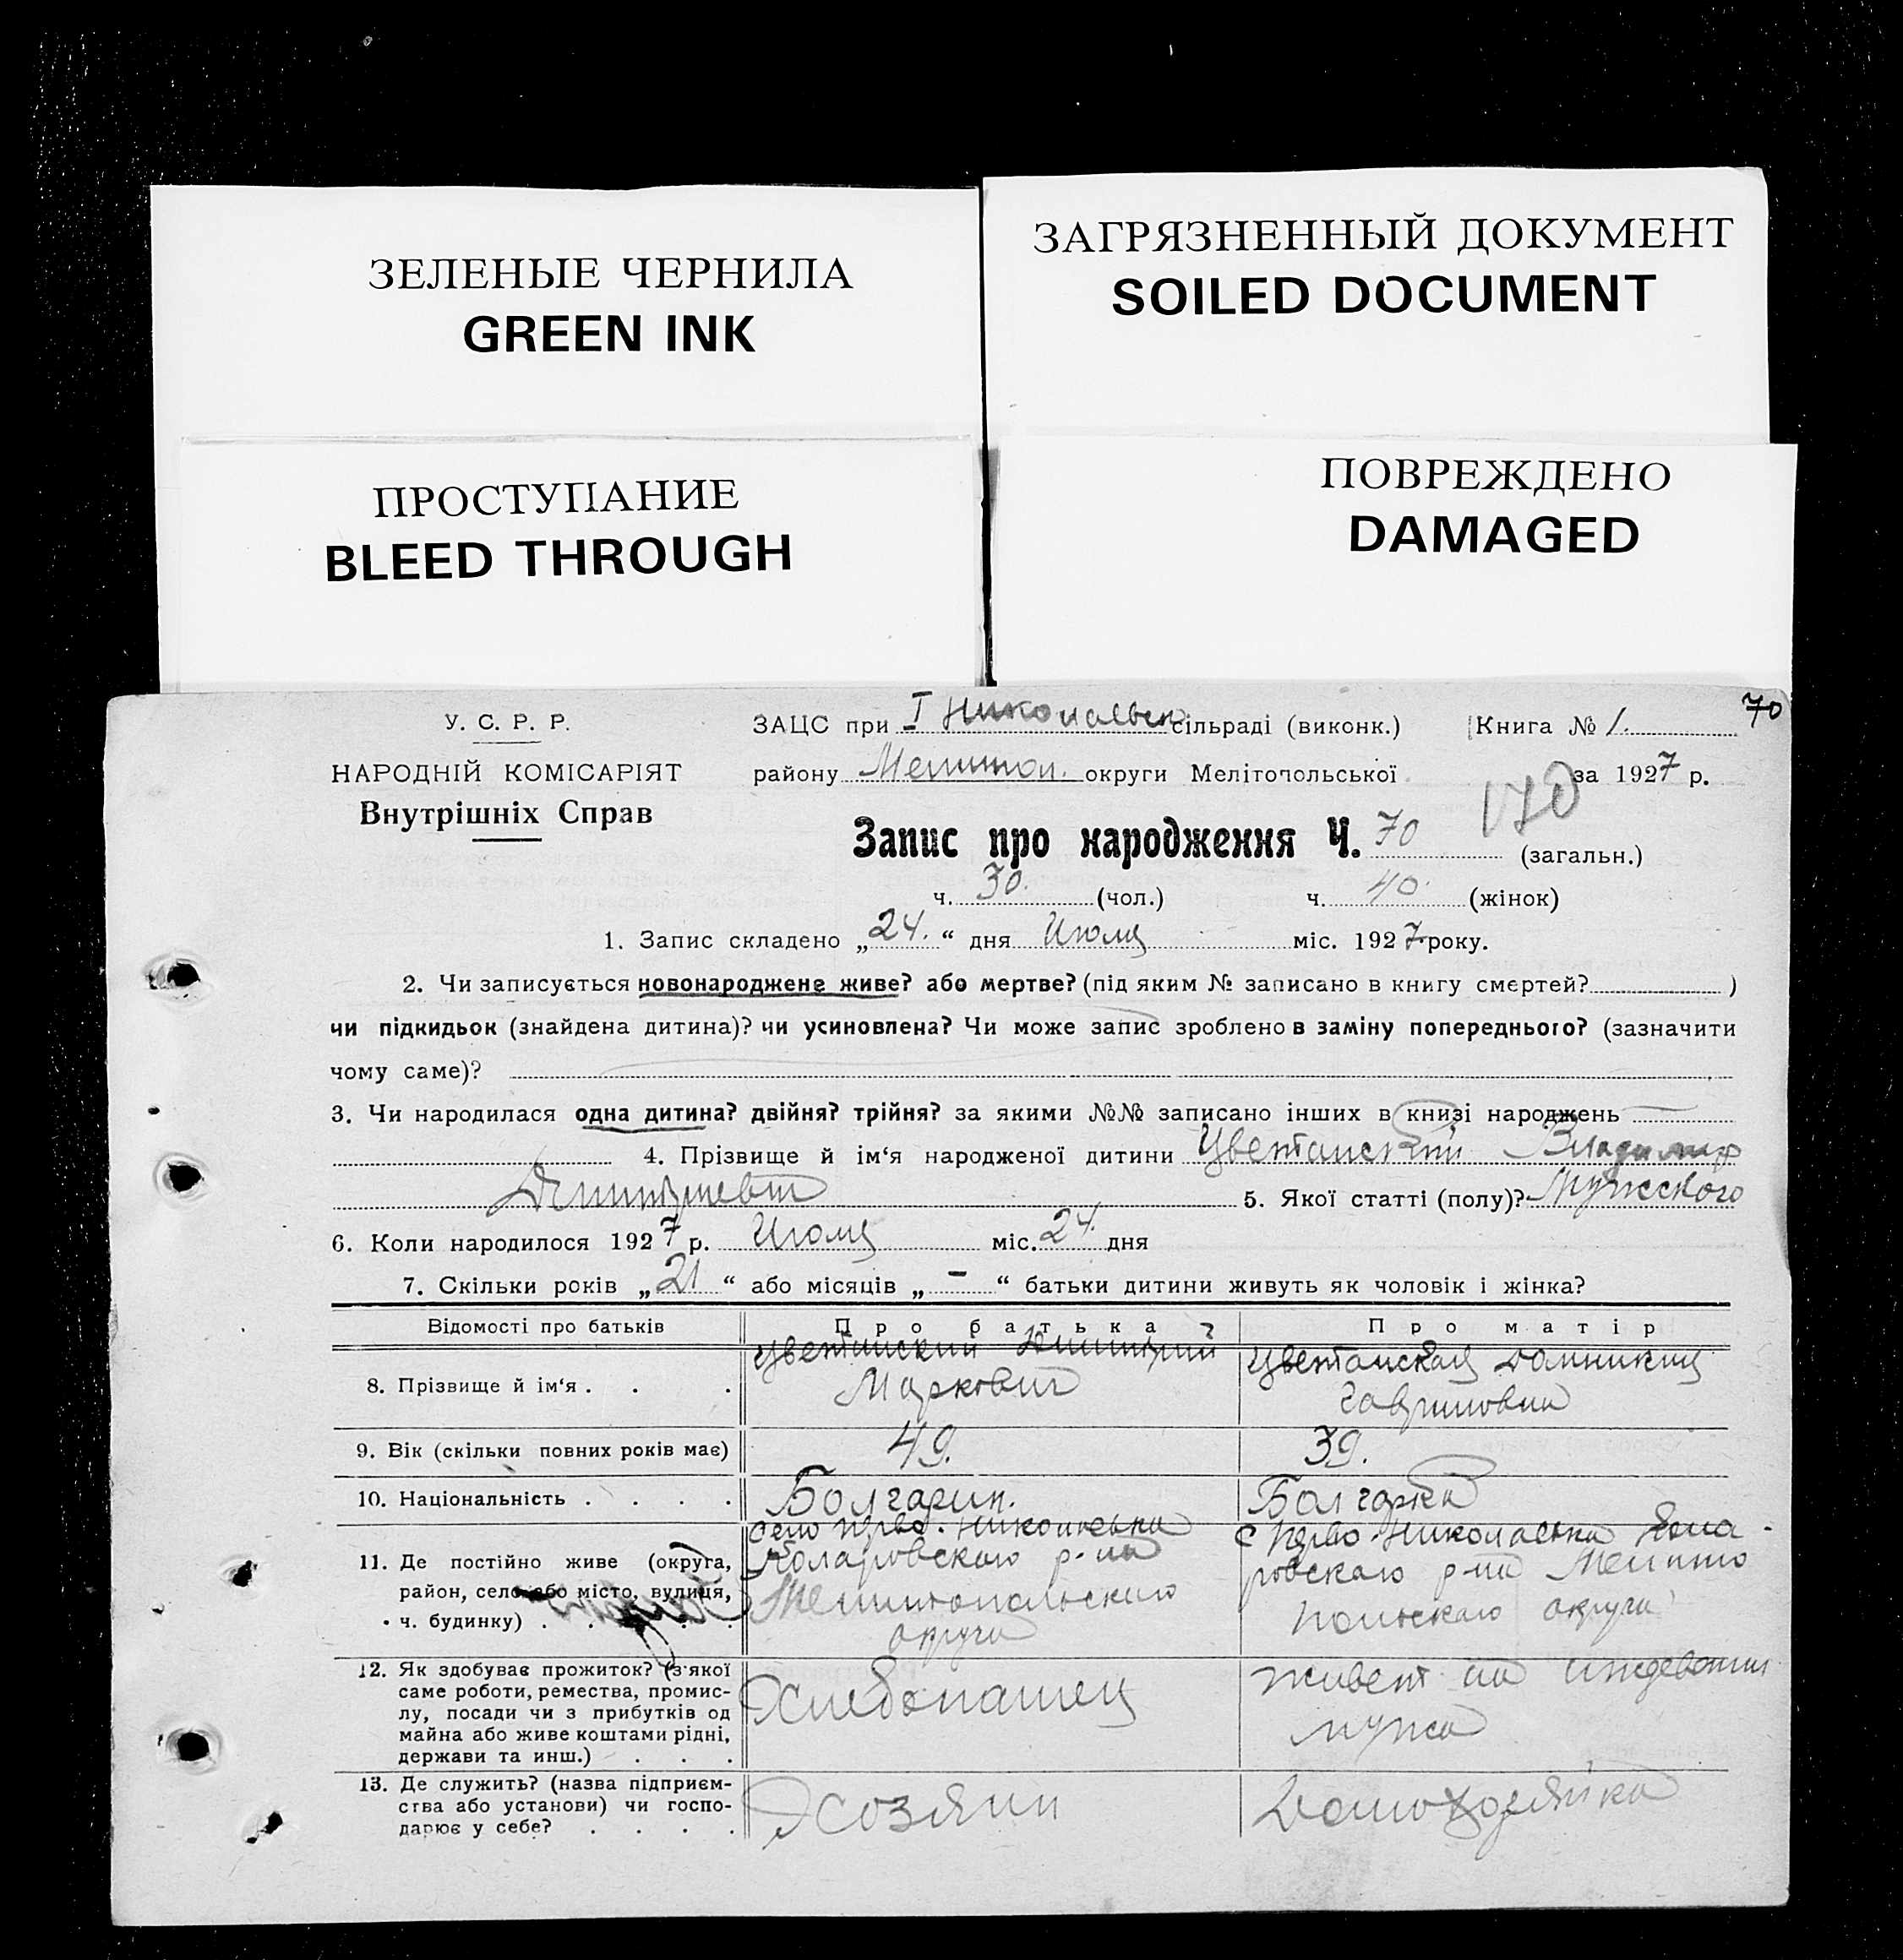 ЗЕЛЕНЫЕ ЧЕРНИЛА
GREEN INK
ЗАГРЯЗНЕННЫЙ ДОКУМЕНТ
SOILED DOCUMENT
ПРОСТУПАНИЕ
BLEED THROUGH
ПОВРЕЖДЕНО
DAMAGED
70
У. С. Р. Р.
НАРОДНІЙ КОМІСАРІЯТ
Внутрішніх Справ
ЗАЦС при I Никольевск сільраді (виконк.) Книга № 1.
району Мелитоп. округи Мелітопольської за 1927 р.
170
Запис про народження Ч. 70 (загальн.)
ч. 30. (чол.) ч. 40. (жінок)
1. Запис складено „24.“ дня Июля міс. 1927 року.
2. Чи записується новонароджене живе? або мертве? (під яким № записано в книгу смертей? )
чи підкидьок (знайдена дитина)? чи усиновлена? Чи може запис зроблено в заміну попереднього? (зазначити
чому саме)?
3. Чи народилася одна дитина? двійня? трійня? за якими №№ записано інших в книзі народжень
4. Прізвище й ім‘я народженої дитини Цветанский Владимир
Дмитриевич 5. Якої статті (полу)? Мужского
6. Коли народилося 1927 р. Июля міс. 24 дня
7. Скільки років „21“ або місяців „-“ батьки дитини живуть як чоловік і жінка?
Відомості про батьків Про батька Про матір
8. Прізвище й ім‘я . . . Цветанский Димитрий Маркович Цветанская Домникия Гавриловна
9. Вік (скільки повних років має) 49. 39.
10. Національність . . . . Болгарин. Болгарка
11. Де постійно живе (округа,
район, село або місто, вулиця,
ч. будинку) . . . . .
Село Перво-Николаевка
Коларовскаго р-на
Мелитопольскаго
округа
с Перво-Николаевка Кола-
ровскаго р-на Мелито
польскаго округа
12. Як здобуває прожиток? (з якої
саме роботи, ремества, промис-
лу, посади чи з прибутків од
майна або живе коштами рідні,
держави та инш.) . . .
Хлебопашец
живет на иждевении
мужа
13. Де служить? (назва підприєм-
ства або установи) чи госпо-
дарює у себе? . . . .
Хозяин
Домохозяйка